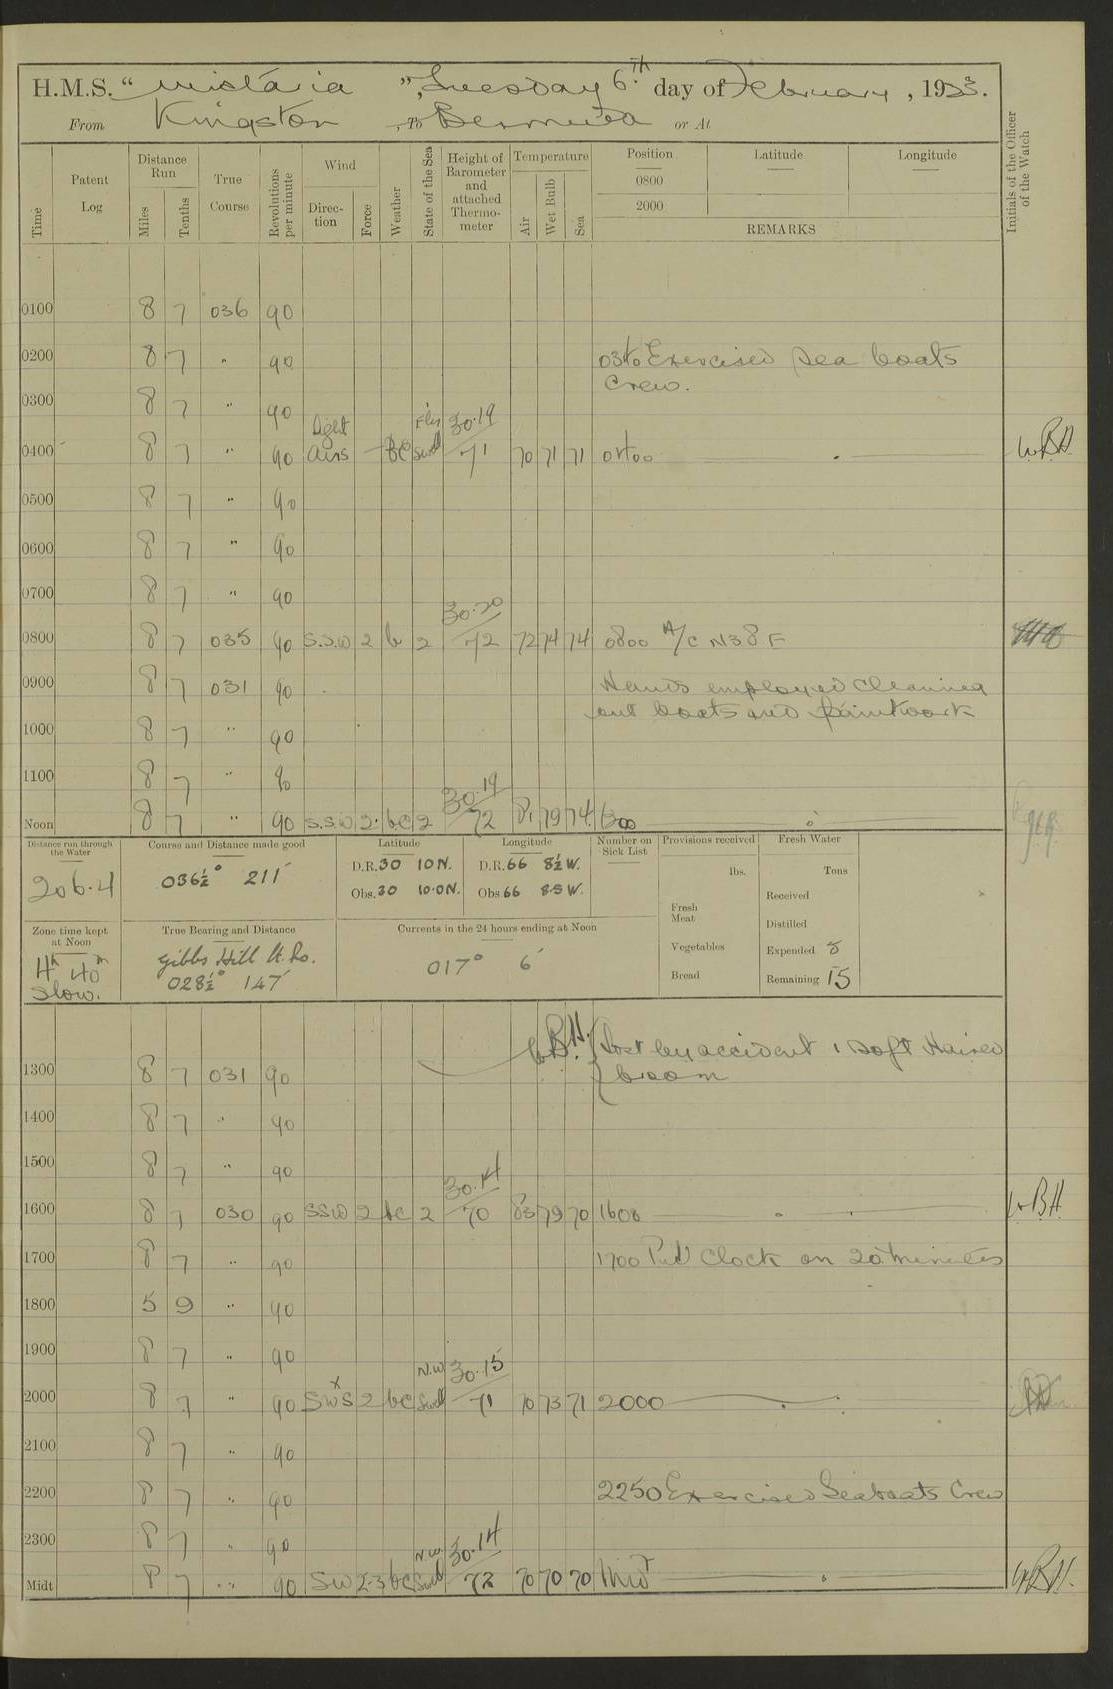 H.M.S. “ Wistaria ”, Tuesday 6.th day of February, 1923.
From Kingston, To Bermuda or At
Time Patent Log Distance Run Miles Tenths True Course Revolutions per minute Wind Direction Force Weather State of the Sea Height of Barometer and attached Thermometer Temperature Air Wet Bulb Sea Position 0800 2000 Latitude Longitude REMARKS Initials of the Officer of the Watch
0100 8 7 036 90
0200 8 7 " 90 Exercised Sea boats
Crew.
0300 8 7 " 90
0400 8 7 " 90 Light airs bc Swell 30.19 71 70 71 71 0400 W.B.H.
0500 8 7 " 90
0600 8 7 " 90
0700 8 7 " 90
0800 8 7 035 90 S.S.W 2 b 2 30.20 72 72 74 74 0800 A/C N38E
0900 8 7 031 90 Hands employed cleaning
out boats and paintwork
1000 8 7 " 90
1100 8 7 " 90
Noon 8 7 " 90 S.S.W 2 bc 2 30.19 72 81 79 74 1200
Distance run through the Water 206.4
Course and Distance made good 036½° 211'
Latitude D.R. 30 10 N. Obs. 30 10.0 N.
Longitude D.R. 66 8½ W. Obs 66 8.5 W.
Number on Sick List
Provisions received lbs. Fresh Meat Vegetables Bread
Fresh Water Tons Received Distilled Expended 8 Remaining 15
Zone time kept at Noon 4h 40m Slow.
True Bearing and Distance Gibbs Hill Lt. Ho. 028½° 147'
Currents in the 24 hours ending at Noon 017° 6'
W.B.H. Lost by accident 1 Soft Haired
broom
1300 8 7 031 90
1400 8 7 " 90
1500 8 7 " 90
1600 8 7 030 90 SSW 2 bc 2 30.14 70 83 79 70 1600 W.B.H.
1700 8 7 " 90 1700 Put Clock on 20 minutes
1800 5 9 " 90
1900 8 7 " 90
2000 8 7 " 90 SWxS 2 bc N.W Swell 30.15 71 70 73 71 2000
2100 8 7 " 90
2200 8 7 " 90 2250 Exercised Seaboats Crew
2300 8 7 " 90
Midt 8 7 " 90 SW 2-3 bc N.W. Swell 30.14 72 70 70 70 Midt W.B.H.